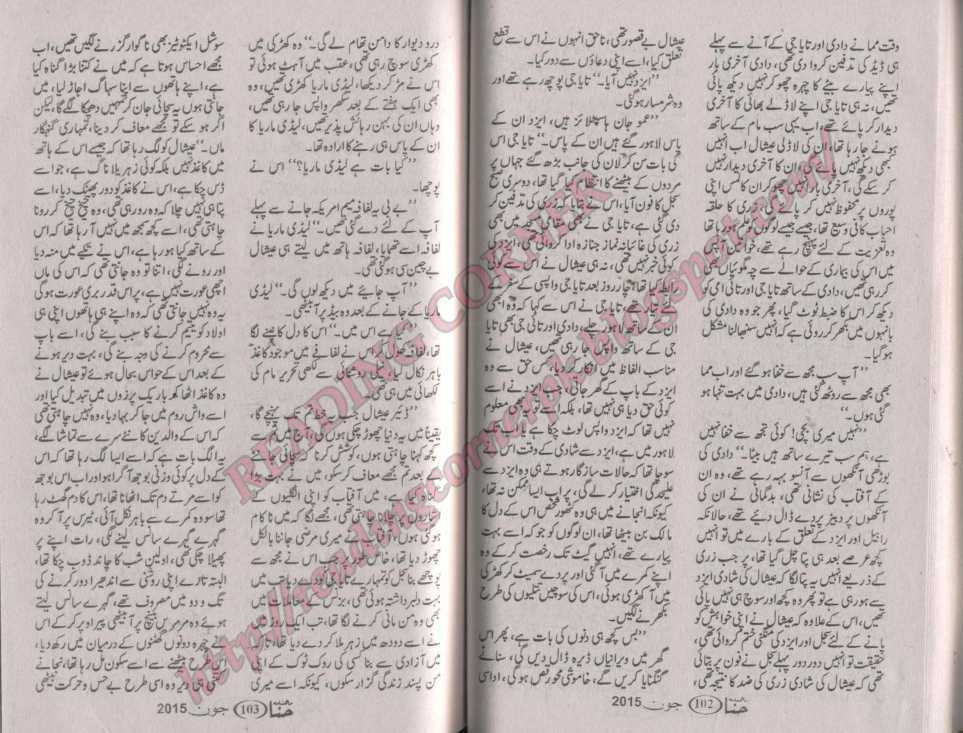 وقت ممانے دادی اور تایا جی کے آنے سے پہلے
ہی ڈیڈ کی تدفین کروا دی تھی، دادی آخری بار
اپنے پیارے بیٹے کا چہرہ چھو کر نہیں دیکھ پائی
تھیں، نہ ہی تایا جی اپنے لاڈلے بھائی کا آخری
دیدار کر پائے تھے، اب یہی سب مام کے ساتھ
ہونے جا رہا تھا، ان کی لاڈلی عیشال اب انہیں
کبھی نہیں دیکھ ان کا آخری دیدار نہیں
کر سکے گی، آخری بار انہیں چھو کر ان کا لمس اپنی
پوروں پر محفوظ نہیں کر پائے گی، زری کا حلقہ
احباب کافی وسیع تھا، جیسے جیسے لوگوں کو علم ہو رہا تھا
وہ تعزیت کے لئے پہنچ رہے تھے، خواتین
میں اس کی بیماری کے حوالے سے چہ مگوئیاں بھی
کر رہی تھیں، دادی کے ساتھ تایا جی اور تائی امی کو
دیکھ کر اس کا ضبط ٹوٹ گیا، پھر جو وہ دادی کی
بانہوں میں بکھر کر روئی ہے کہ انہیں سنبھالنا مشکل
ہو گیا۔
”آپ سب مجھ سے خفا ہو گئے اور اب مما
بھی مجھ سے روٹھ گئی ہیں، دادی میں بہت تنہا ہو
گئی ہوں۔“
”نہیں میری بچی! کوئی تجھ سے خفا نہیں
ہے، ہم سب تیرے ساتھ ہیں بیٹا۔“ دادی کی
بوڑھی آنکھوں سے آنسو بہہ رہے تھے، وہ ان
کے آفتاب کی نشانی تھی، بدگمانی نے ان کی
آنکھوں پر دبیز پردے ڈال دیئے تھے، حالانکہ
رابیل اور ایزد کے تعلق کے بارے میں تو انہیں
کچھ عرصے بعد ہی پتا چل گیا تھا، پر جب زری
کے ذریعے انہیں یہ پتا لگا کہ عیشال کی شادی ایزد
سے ہو رہی ہے تو پھر وہ کچھ اور سوچ ہی نہیں پائی
تھیں، اس کے علاوہ کہ عیشال نے اپنی خواہش کو
پانے کے لئے سجل اور ایزد کی منگنی ختم کروائی تھی،
حقیقت تو انہیں دو روز پہلے سجل نے فون پر بتائی
تھی کہ عیشال کی شادی زری کی ضد کا نتیجہ تھی،
حنا 102 جون 2015
عیشال بے قصور تھی، ناحق انہوں نے اس سے قطع
تعلق کیا، اسے اپنی دعاؤں سے دور کیا۔
”ایزد نہیں آیا۔“ تایا جی پوچھ رہے تھے اور
وہ شرمسار ہو گئی۔
”عمو جان ہاسپٹلائز ہیں، ایزد ان کے
پاس لاہور گئے ہیں ان کے پاس۔“ تایا جی اس
کی بات سن کر لان کی جانب بڑھ گئے جہاں پر
مردوں کے بیٹھنے کا انتظام کیا گیا تھا، دوسری صبح
سجل کا فون آیا، اس نے بتایا کہ زری کی تدفین کر
دی گئی ہے، تایا جی نے مقامی مسجد میں بھی
زری کی غائبانہ نماز جنازہ ادا کروائی تھی، ایزد کی
کوئی خبر نہیں تھی، نہ ہی عیشال نے اس سے کوئی
رابطہ کیا تھا، چار روز بعد تایا جی واپسی کے سفر کے
لئے تیار تھے، تایا جی نے اس سے کہا کہ وہ بھی
ان کے ساتھ لاہور چلے، دادی اور تائی جی بھی تایا
جی کے ساتھ واپس جا رہی تھیں، عیشال نے
مناسب الفاظ میں انکار کر دیا، کس حق سے وہ
ایزد کے باپ کے گھر جاتی، جب ایزد نے اسے
کوئی حق دیا ہی نہیں تھا، بلکہ اسے تو یہ بھی معلوم
نہیں تھا کہ ایزد واپس لوٹ چکا ہے یا اب تک
لاہور میں ہے، ایزد سے شادی کے وقت اس نے
سوچا تھا کہ حالات سازگار ہوتے ہی وہ ایزد سے
علیحدگی اختیار کر لے گی، پر اب ایسا ممکن نہ تھا،
کیونکہ انجانے میں ہی وہ کٹھور شخص اس کے دل کا
مالک بن بیٹھا تھا، ان لوگوں کو جو کہ اسے بہت
پیارے تھے، انہیں گیٹ تک رخصت کر کے وہ
اپنے کمرے میں آ گئی اور پردے سمیٹ کر کھڑکی
میں آ کھڑی ہوئی، اس کی سوچیں تتلیوں کی طرح
بکھرنے لگیں۔
”بس کچھ ہی دنوں کی بات ہے، پھر اس
گھر میں ویرانیاں ڈیرہ ڈال دیں گی، سناٹے
گنگنایا کریں گے، خاموشی محو رقص ہو گی، اداسی
در و دیوار کا دامن تھام لے گی۔“ وہ کھڑکی میں
کھڑی سوچ رہی تھی، عقب میں آہٹ ہوئی تو
اس نے مڑ کر دیکھا، لیڈی ماریا کھڑی تھیں، وہ
بھی ایک ہفتے کے بعد سکھر واپس جا رہی تھیں،
وہاں ان کی بہن رہائش پذیر تھیں، لیڈی ماریا کا
ان کے پاس ہی رہنے کا ارادہ تھا۔
”کیا بات ہے لیڈی ماریا؟“ اس نے
پوچھا۔
”بے بی یہ لفافہ میم امریکہ جانے سے پہلے
آپ کے لئے دے گئی تھیں۔“ لیڈی ماریا نے
لفافہ اسے تھمایا، لفافہ ہاتھ میں لیتے ہی عیشال
بے چین سی ہو گئی تھی۔
”آپ جائیے میں دیکھ لوں گی۔“ لیڈی
ماریا کے جانے کے بعد وہ بیڈ پر آ بیٹھی۔
ہے اس میں۔“ اس کا دل کانپنے لگا
تھا، لفافہ کھول کر اس نے لفافے میں موجود کاغذ
باہر نکال لیا، نیلی روشنائی سے لکھی تحریر مام کی
لکھائی میں ہی تھی۔
”ڈئیر عیشال جب یہ خط تم تک پہنچے گا،
یقیناً میں یہ دنیا چھوڑ چکی ہوں گی، آج میں تم سے
کچھ کہنا چاہتی ہوں، کوشش کرنا کہ سچائی جاننے
کے بعد تم مجھے معاف کر سکو، میں نے بہت بڑا
گناہ کیا ہے، میں آفتاب کو اپنی انگلیوں کے
اشاروں پر چلانا چاہتی تھی، مجھے لگا کہ میں ناکام
ہو گئی ہوں، آفتاب نے میری مرضی جاننا بالکل
چھوڑ دیا تھا، خاص جب اس نے مجھ سے
پوچھے بنا سجل کو تمہارے تایا جی کو دے دیا تب میں
بہت دلبرداشتہ ہوئی تھی، بزنس کے معاملات میں
بھی وہ من مانی کرنے لگا تھا، تب ایک روز میں
نے اسے دودھ میں زہر ملا کر دے دیا، تاکہ
میں آزادی سے بنا کسی کی روک ٹوک کے اپنی
من پسند زندگی گزار سکوں، کیونکہ اسے میری
حنا 103 جون 2015
سوشل ایکٹوٹیز بھی ناگوار گزرنے لگیں تھیں، اب
مجھے احساس ہوتا ہے کہ میں نے کتنا بڑا گناہ کیا
ہے، اپنے ہاتھوں سے اپنا سہاگ اجاڑ لیا، میں
جانتی ہوں یہ سچائی جان کر تمہیں دھچکا لگے گا، لیکن
اگر ہو سکے تو مجھے معاف کر دینا، تمہاری گنہگار
ماں۔“ عیشال کو لگ رہا تھا کہ جیسے اس کے ہاتھ
میں کاغذ نہیں بلکہ کوئی زہریلا ناگ ہے، جو اسے
ڈس چکا ہے، اس نے کاغذ کو دور پھینک دیا، اسے
پتا ہی نہیں چلا کہ وہ رو رہی تھی، وہ چیخ چیخ کر رونا
چاہتی تھی، اسے کچھ سمجھ میں نہیں آ رہا تھا کہ اس
کے ساتھ کیا ہو رہا ہے، اس نے تکیے میں منہ دیا
اور رونے لگی، اتنا تو وہ جانتی تھی کہ اس کی ماں
اچھی عورت نہیں ہے، پر اس قدر بری عورت ہو گی
یہ وہ نہیں جانتی تھی کہ وہ اپنے ہی ہاتھوں اپنی ہی
اولاد کو یتیم کرنے کا سبب بنے گی، اسے باپ
سے محروم کرنے کی وجہ بنے گی، بہت دیر ہونے
کے بعد اس کے حواس بحال ہوئے تو عیشال نے
وہ کاغذ اٹھا کر باریک پرزوں میں تبدیل کیا اور
اسے واش روم میں جا کر بہا دیا، وہ نہیں چاہتی تھی
کہ اس کے والدین کا نئے سرے سے تماشا لگے،
یہ الگ بات ہے کہ اسے ایسا لگ رہا تھا کہ اس
کے دل پر کوئی وزنی بوجھ آ گرا ہو اور اب اس بوجھ
کو اسے مرتے دم تک اٹھانا تھا، اس کا دم گھٹ رہا
تھا سو وہ کمرے سے باہر نکل آئی، ٹیرس پر آ کر وہ
گہرے گہرے سانس لینے لگی، رات اپنے پر
پھیلا چکی تھی، اولین شب کا چاند ڈوب چکا تھا،
البتہ تارے اپنی روشنی سے اندھیرا دور کرنے کی
تگ و دو میں مصروف تھے، گہرے سانس لیتے
ہوئے وہ مرمریں بینچ پر آ بیٹھی پیر اوپر کر کے اس
نے چہرہ دونوں گھٹنوں کے درمیان میں رکھ دیا،
اس طرح بیٹھنے سے اسے سکون مل رہا تھا، نجانے
کتنی ہی دیر وہ اسی طرح بے حس و حرکت بیٹھی
READING CORNER
http://readingcornerpk.blogspot.com/